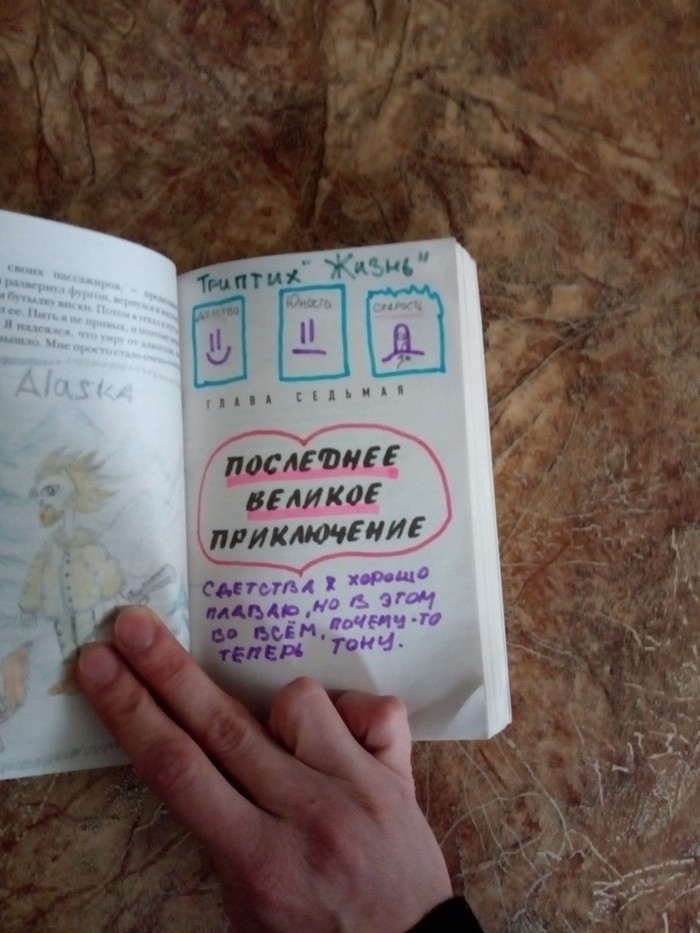 своих пассажиров, —
развернул фургон, вернулся в
бутылку виски. Потом я уехал в
ее. Пить я не привык, и поэтому
Я надеялся, что умру от
вышло. Мне просто стало очень
Alaska
Триптих "Жизнь"
Детство Юность Старость
ГЛАВА СЕДЬМАЯ
ПОСЛЕДНЕЕ
ВЕЛИКОЕ
ПРИКЛЮЧЕНИЕ
С ДЕТСТВА Я ХОРОШО
ПЛАВАЮ, НО В ЭТОМ
ВО ВСЁМ, ПОЧЕМУ-ТО
ТЕПЕРЬ ТОНУ.